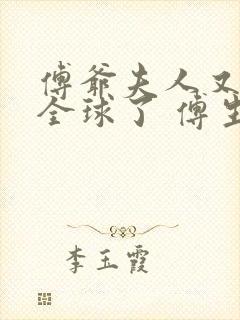 傅爷夫人又
全球了 傅生
李玉霞